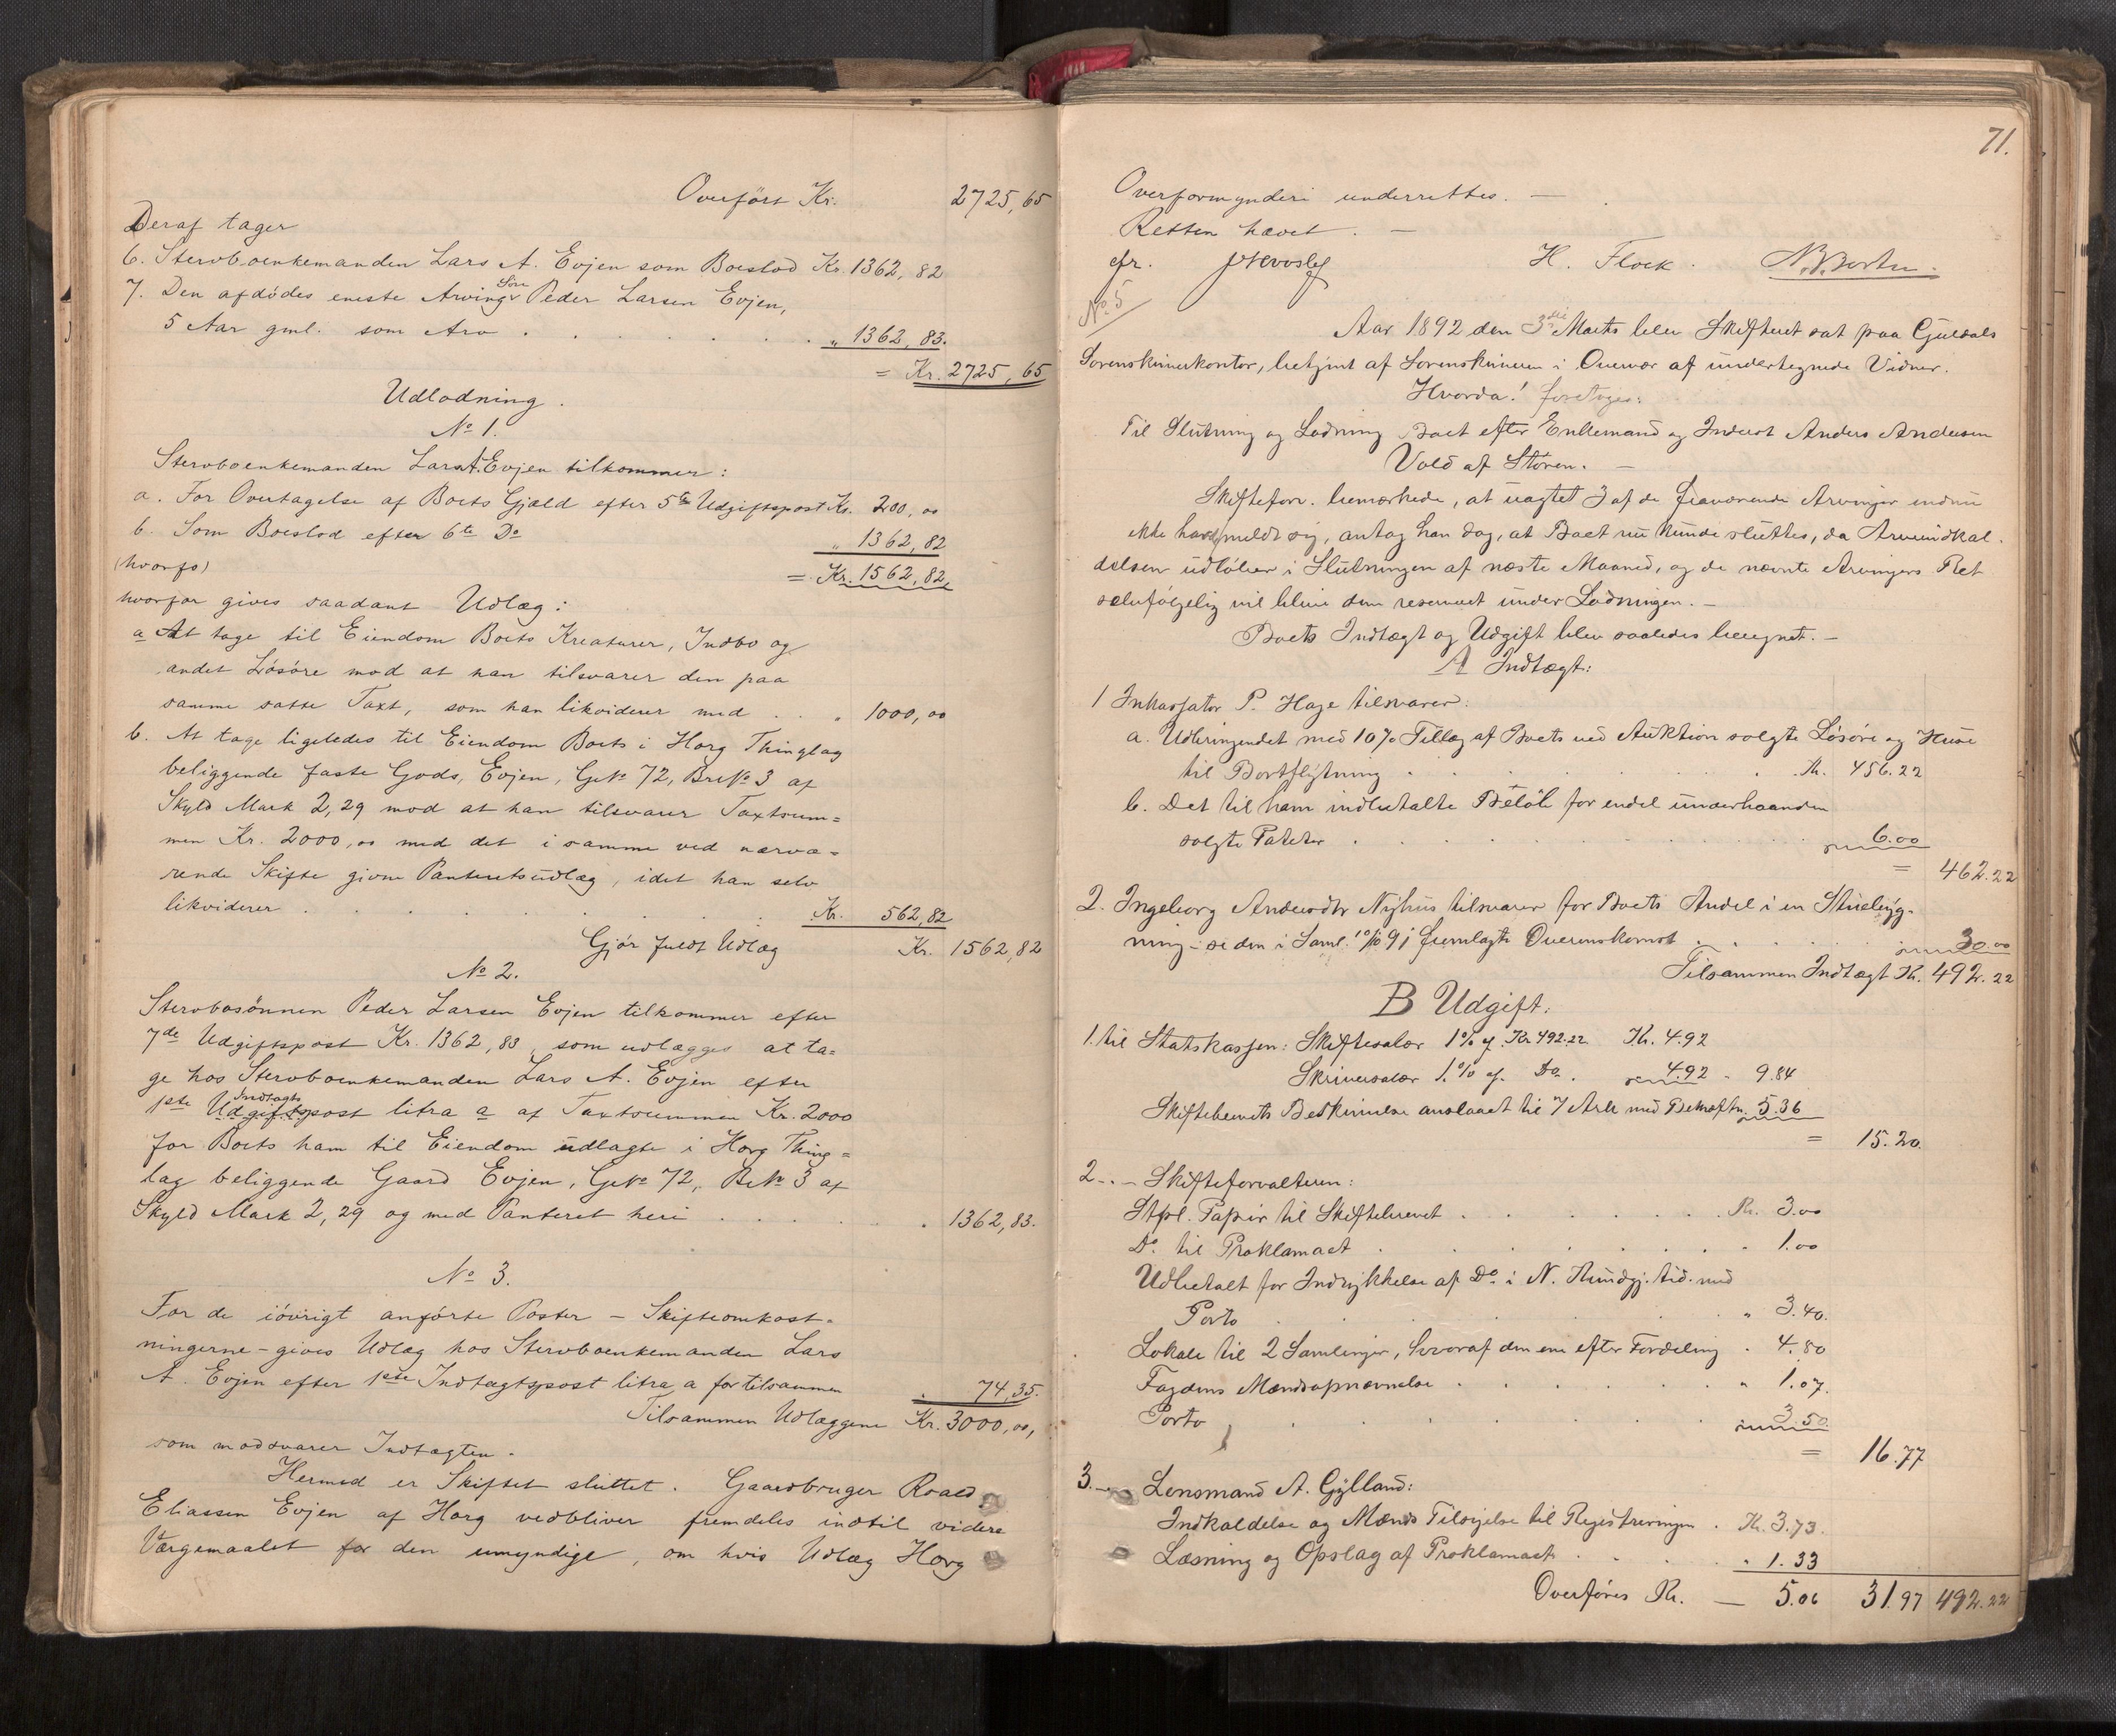 Overført Kr. 2725,65
Deraf tager
6. Stervboenkemanden Lars A. Evjen som Boeslod Kr. 1362,82
7. Den afdødes eneste Arving, Søn Peder Larsen Evjen,
5 Aar gml. som Arv . . . . . . . „ 1362,83.
= Kr. 2725,65
Udlodning.
No 1.
Stervboenkemanden Lars A. Evjen tilkommer:
a. For Overtagelse af Boets Gjæld efter 5te Udgiftspost Kr. 200,00
b. Som Boeslod efter 6te Do „ 1362,82
(hvorfo) = Kr. 1562,82,
hvorfor gives saadant Udlæg:
a At tage til Eiendom Boets Kreaturer, Indbo og
andet Løsøre mod at han tilsvarer den paa
samme satte Taxt, som han likviderer med . . „ 1000,00
b. At tage ligeledes til Eiendom Boets i Horg Thinglag
beliggende faste Gods, Evjen, GNo 72, BrNo 3 af
Skyld Mark 2,29 mod at han tilsvarer Taxtsum=
men Kr. 2000,00 med det i samme ved nærvæ=
rende Skifte givne Panteretsudlæg, idet han selv
likviderer . . . . . . . Kr. 562,82
Gjør fuldt Udlæg Kr. 1562,82
No 2.
Stervbosønnen Peder Larsen Evjen tilkommer efter
7de Udgiftspost Kr. 1362,83, som udlægges at ta=
ge hos Stervboenkemanden Lars A. Evjen efter
1ste Udgiftspost Indtægts litra a af Taxtsummen Kr. 2000
for Boets ham til Eiendom udlagte i Horg Thing=
lag beliggende Gaard Evjen, GNo 72, BNo 3 af
Skyld Mark 2,29 og med Panteret heri . . . . . . 1362,83.
No 3.
For de iøvrigt anførte Poster – Skifteomkost=
ningerne – gives Udlæg hos Stervboenkemanden Lars
A. Evjen efter 1ste Indtægtspost litra a for tilsammen . 74,35.
Tilsammen Udlæggene Kr. 3000,00,
som modsvarer Indtægten.
Hermed er Skiftet sluttet. Gaardbruger Roald
Eliassen Evjen af Horg vedbliver fremdeles indtil videre
Værgemaalet for den umyndige, om hvis Udlæg Horg
71.
Overformynderi underrettes. —
Retten hævet. —
H. Flock. N. Borten.
No. 5
Aar 1892 den 3die Marts blev Skifteret sat paa Guldals
Sorenskriverkontor, betjent af Sorenskriveren i Overvær af undertegnede Vidner.
Hvorda! foretoges:
Til Slutning og Lodning Boet efter Enkemand og Inderst Anders Andersen
Vold af Støren. —
Skifteforv. bemærkede, at uagtet 3 af de fraværende Arvinger endnu
ikke havde meldt sig, antog han dog, at Boet nu kunde sluttes, da Arveindkal-
delsen udløber i Slutningen af næste Maaned, og de nævnte Arvingers Ret
selvfølgelig vil blive dem reserveret under Lodningen. —
Boets Indtægt og Udgift blev saaledes beregnet. —
A Indtægt:
1 Inkassator P. Hage tilsvarer:
a. Udbringendet med 10% Tillæg af Boets ved Auktion solgte Løsøre og Huse
til Bortflytning . . . . . . Kr. 456.22
b. Det til ham indbetalte Beløb for endel underhaanden
solgte Poteter . . . . . . 6.00
= 462.22
2. Ingeborg Andersdtr Nyhus tilsvarer for Boets Andel i en Stuebyg-
ning – se den i Saml. 10/10 91 fremlagte Overenskomst . . . . 30.00
Tilsammen Indtægt Kr. 492.22
B Udgift.
1. til Statskassen: Skiftesalær 1% af Kr 492.22 Kr. 4.92
Skriversalær 1% af Do. 4.92 - 9.84
Skiftebrevets Beskrivelse anslaaet til 7 Ark med Bekræftn. 5.36
= 15.20.
2 - . - Skifteforvalteren:
Stpl. Papir til Skiftebrevet . . . . . Kr. 3.00
Do. til Proklamaet . . . . . . - 1.00
Udbetalt for Indrykkelse af Do i N. Kundgj. tid. med
Porto . . . . . . . „ 3.40.
Lokale til 2 Samlinger, hvoraf den ene efter Fordeling . 4.80
Fogdens Mændsopnævnelse . . . . . „ 1.07.
Porto . . . . . . . 3.50.
= 16.77
3. - Lensmand A. Gylland:
Indkaldelse og Mænds Tilsigelse til Registreringen . Kr. 3.73.
Læsning og Opslag af Proklamaet . . . . „ 1.33
Overføres Kr. — 5.06 31.97 492.22